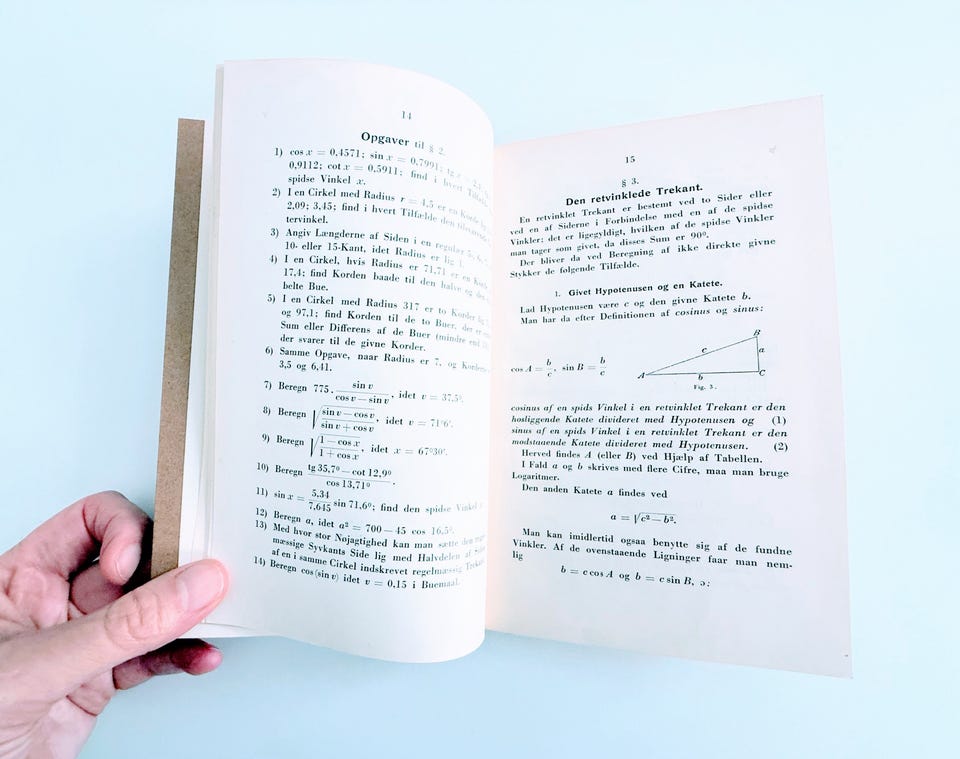 14
Opgaver til § 2.
1) cos x = 0,4571; sin x = 0,7991; tg x =
0,9112; cot x = 0,5911; find i hvert Tilfælde
spidse Vinkel x.
2) I en Cirkel med Radius r = 4,5 er en Korde
2,09; 3,45; find i hvert Tilfælde den tilsvarende
tervinkel.
3) Angiv Længderne af Siden i en regulær 5-, 6-,
10- eller 15-Kant, idet Radius er lig
4) I en Cirkel, hvis Radius er 71,71 er en Korde
17,4; find Korden baade til den halve og den
belte Bue.
5) I en Cirkel med Radius 317 er to Korder lig
og 97,1; find Korden til de to Buer, der er
Sum eller Differens af de Buer (mindre end
der svarer til de givne Korder.
6) Samme Opgave, naar Radius er 7, og Korderne
3,5 og 6,41.
7) Beregn 775 · sin v / (cos v − sin v), idet v = 37,5º.
8) Beregn √((sin v − cos v) / (sin v + cos v)), idet v = 71º6′.
9) Beregn √((1 − cos x) / (1 + cos x)), idet x = 67º30′.
10) Beregn (tg 35,7º − cot 12,9º) / cos 13,71º.
11) sin x = 5,34 / 7,645 sin 71,6º; find den spidse Vinkel
12) Beregn a, idet a² = 700 − 45 cos 16,5º.
13) Med hvor stor Nøjagtighed kan man sætte den
mæssige Syvkants Side lig med Halvdelen af Siden
af en i samme Cirkel indskrevet regelmæssig Trekant
14) Beregn cos (sin v) idet v = 0,15 i Buemaal.
15
§ 3.
Den retvinklede Trekant.
En retvinklet Trekant er bestemt ved to Sider eller
ved en af Siderne i Forbindelse med en af de spidse
Vinkler; det er ligegyldigt, hvilken af de spidse Vinkler
man tager som givet, da disses Sum er 90º.
Der bliver da ved Beregning af ikke direkte givne
Stykker de følgende Tilfælde.
1. Givet Hypotenusen og en Katete.
Lad Hypotenusen være c og den givne Katete b.
Man har da efter Definitionen af cosinus og sinus:
cos A = b/c, sin B = b/c
B
c
a
A
b
C
Fig. 3.
cosinus af en spids Vinkel i en retvinklet Trekant er den
hosliggende Katete divideret med Hypotenusen og (1)
sinus af en spids Vinkel i en retvinklet Trekant er den
modstaaende Katete divideret med Hypotenusen. (2)
Herved findes A (eller B) ved Hjælp af Tabellen.
I Fald a og b skrives med flere Cifre, maa man bruge
Logaritmer.
Den anden Katete a findes ved
a = √(c² − b²).
Man kan imidlertid ogsaa benytte sig af de fundne
Vinkler. Af de ovenstaaende Ligninger faar man nem-
lig
b = c cos A og b = c sin B, ɔ: